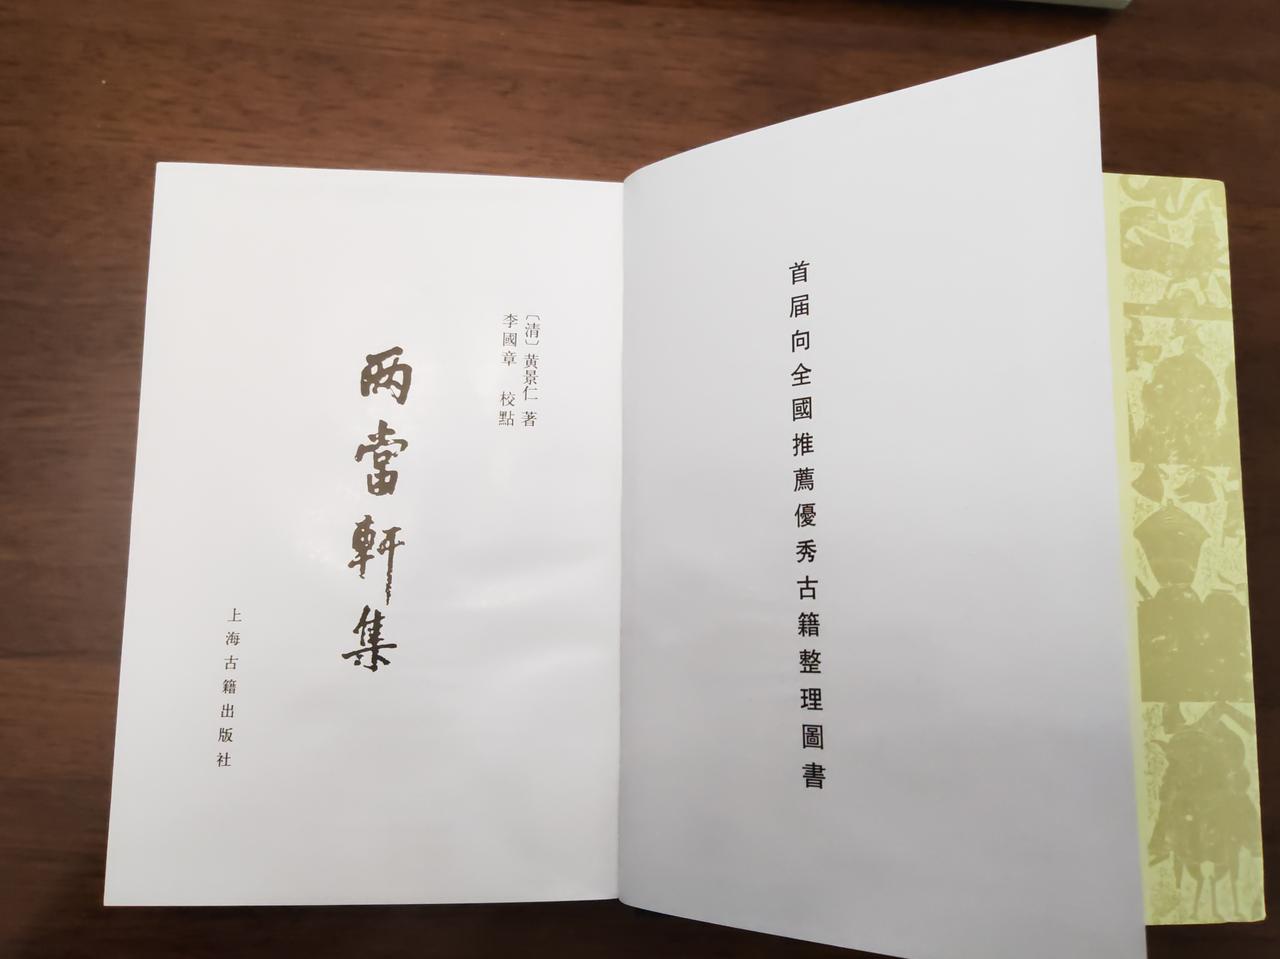 首届向全國推薦優秀古籍整理圖書
〔清〕黄景仁 著
李國章 校點
两當軒集
上海古籍出版社